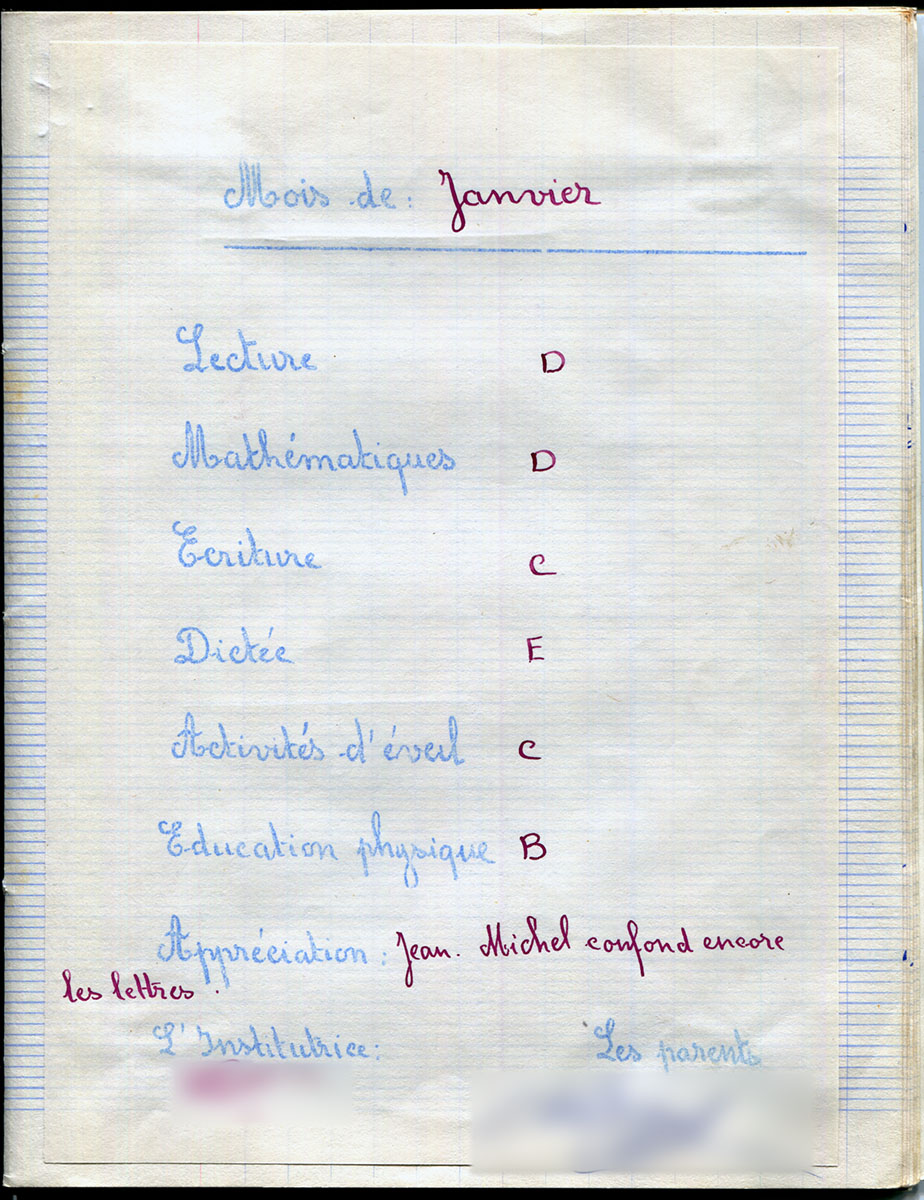 Mois de : Janvier
Lecture D
Mathématiques D
Ecriture C
Dictée E
Activités d'éveil C
Education physique B
Appréciation : Jean. Michel confond encore
les lettres.
L'Institutrice : Les parents